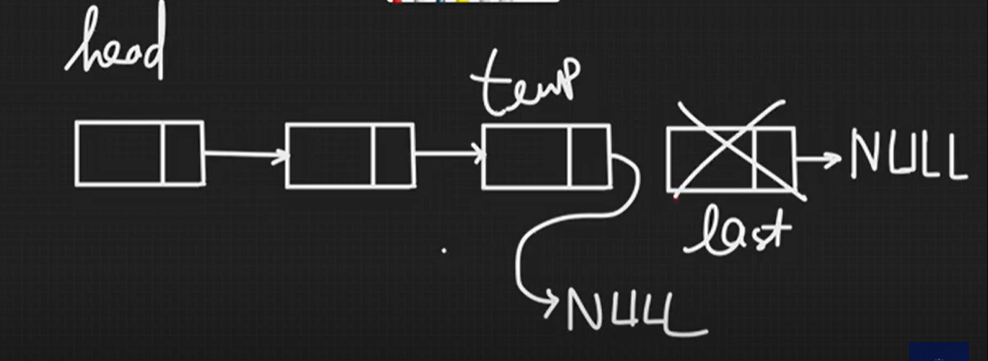 head
temp
NULL
last
NULL